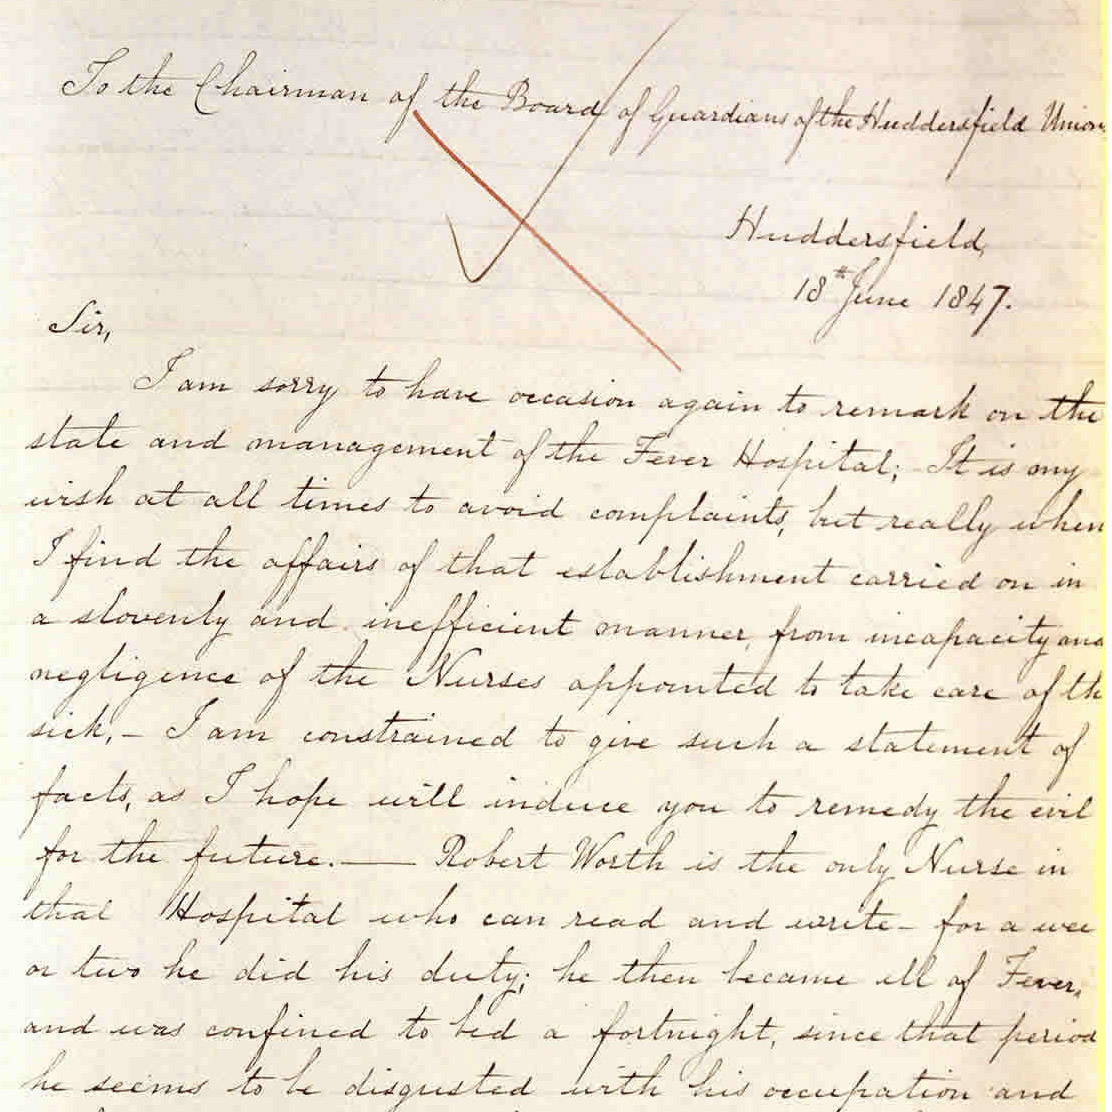 To the Chairman of the Board of Guardians of the Huddersfield Union
Huddersfield,
18th June 1847.
Sir,
I am sorry to have occasion again to remark on the
state and management of the Fever Hospital; It is my
wish at all times to avoid complaints, but really when
I find the affairs of that establishment carried on in
a slovenly and inefficient manner, from incapacity and
negligence of the Nurses appointed to take care of th
sick, – I am constrained to give such a statement of
facts, as I hope will induce you to remedy the evil
for the future. — Robert Worth is the only Nurse in
that Hospital who can read and write – for a wee
or two he did his duty; he then became ill of Fever,
and was confined to bed a fortnight, since that period
he seems to be disgusted with his occupation and